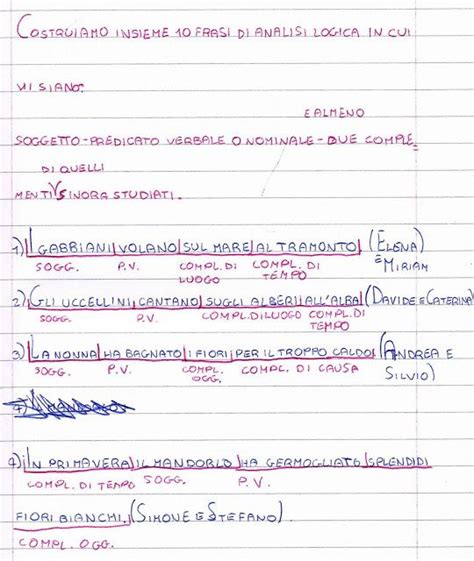 COSTRUIAMO INSIEME 10 FRASI DI ANALISI LOGICA IN CUI
VI SIANO:
E ALMENO
SOGGETTO-PREDICATO VERBALE O NOMINALE-DUE COMPLE=
DI QUELLI
MENTI V SINORA STUDIATI.
1) I GABBIANI|VOLANO|SUL MARE|AL TRAMONTO| (ELENA
SOGG. P.V. COMPL. DI LUOGO COMPL. DI TEMPO E MIRIAM
2) GLI UCCELLINI|CANTANO|SUGLI ALBERI|ALL'ALBA|(DAVIDE E CATERINA)
SOGG. P.V. COMPL. DI LUOGO COMPL. DI TEMPO
3) LA NONNA|HA BAGNATO|I FIORI|PER IL TROPPO CALDO|(ANDREA E
SOGG. P.V. COMPL. OGG. COMPL. DI CAUSA SILVIO)
4) IN PRIMAVERA|IL MANDORLO|HA GERMOGLIATO|SPLENDIDI
COMPL. DI TEMPO SOGG. P.V.
FIORI BIANCHI.|(SIMONE E STEFANO).
COMPL. OGG.